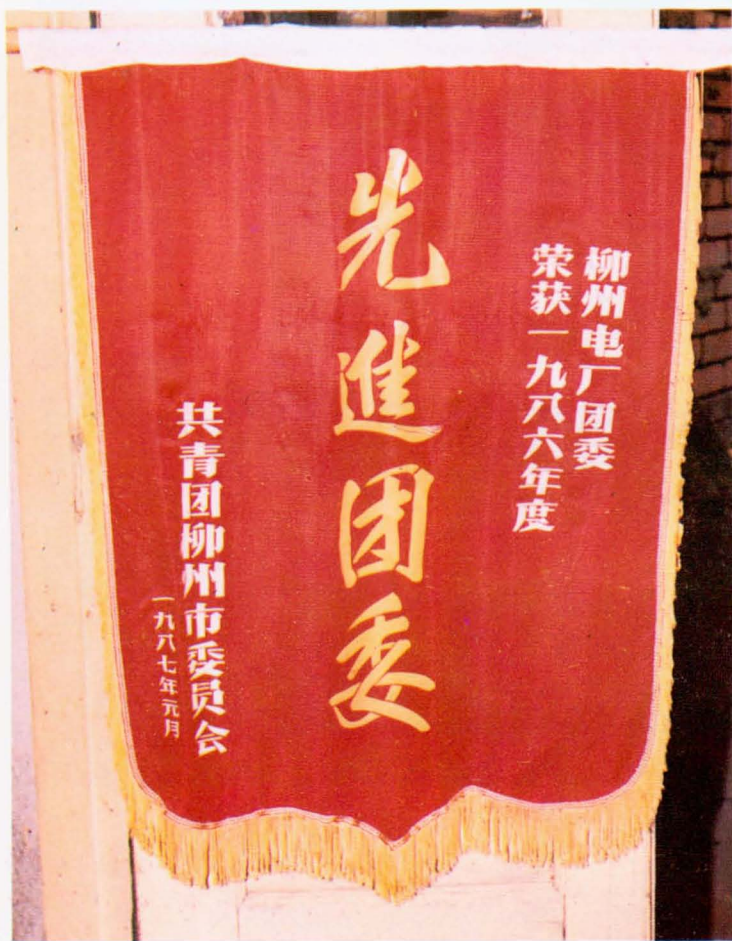 柳州电厂团委
荣获一九八六年度
先進团委
共青团柳州市委员会
一九八七年元月